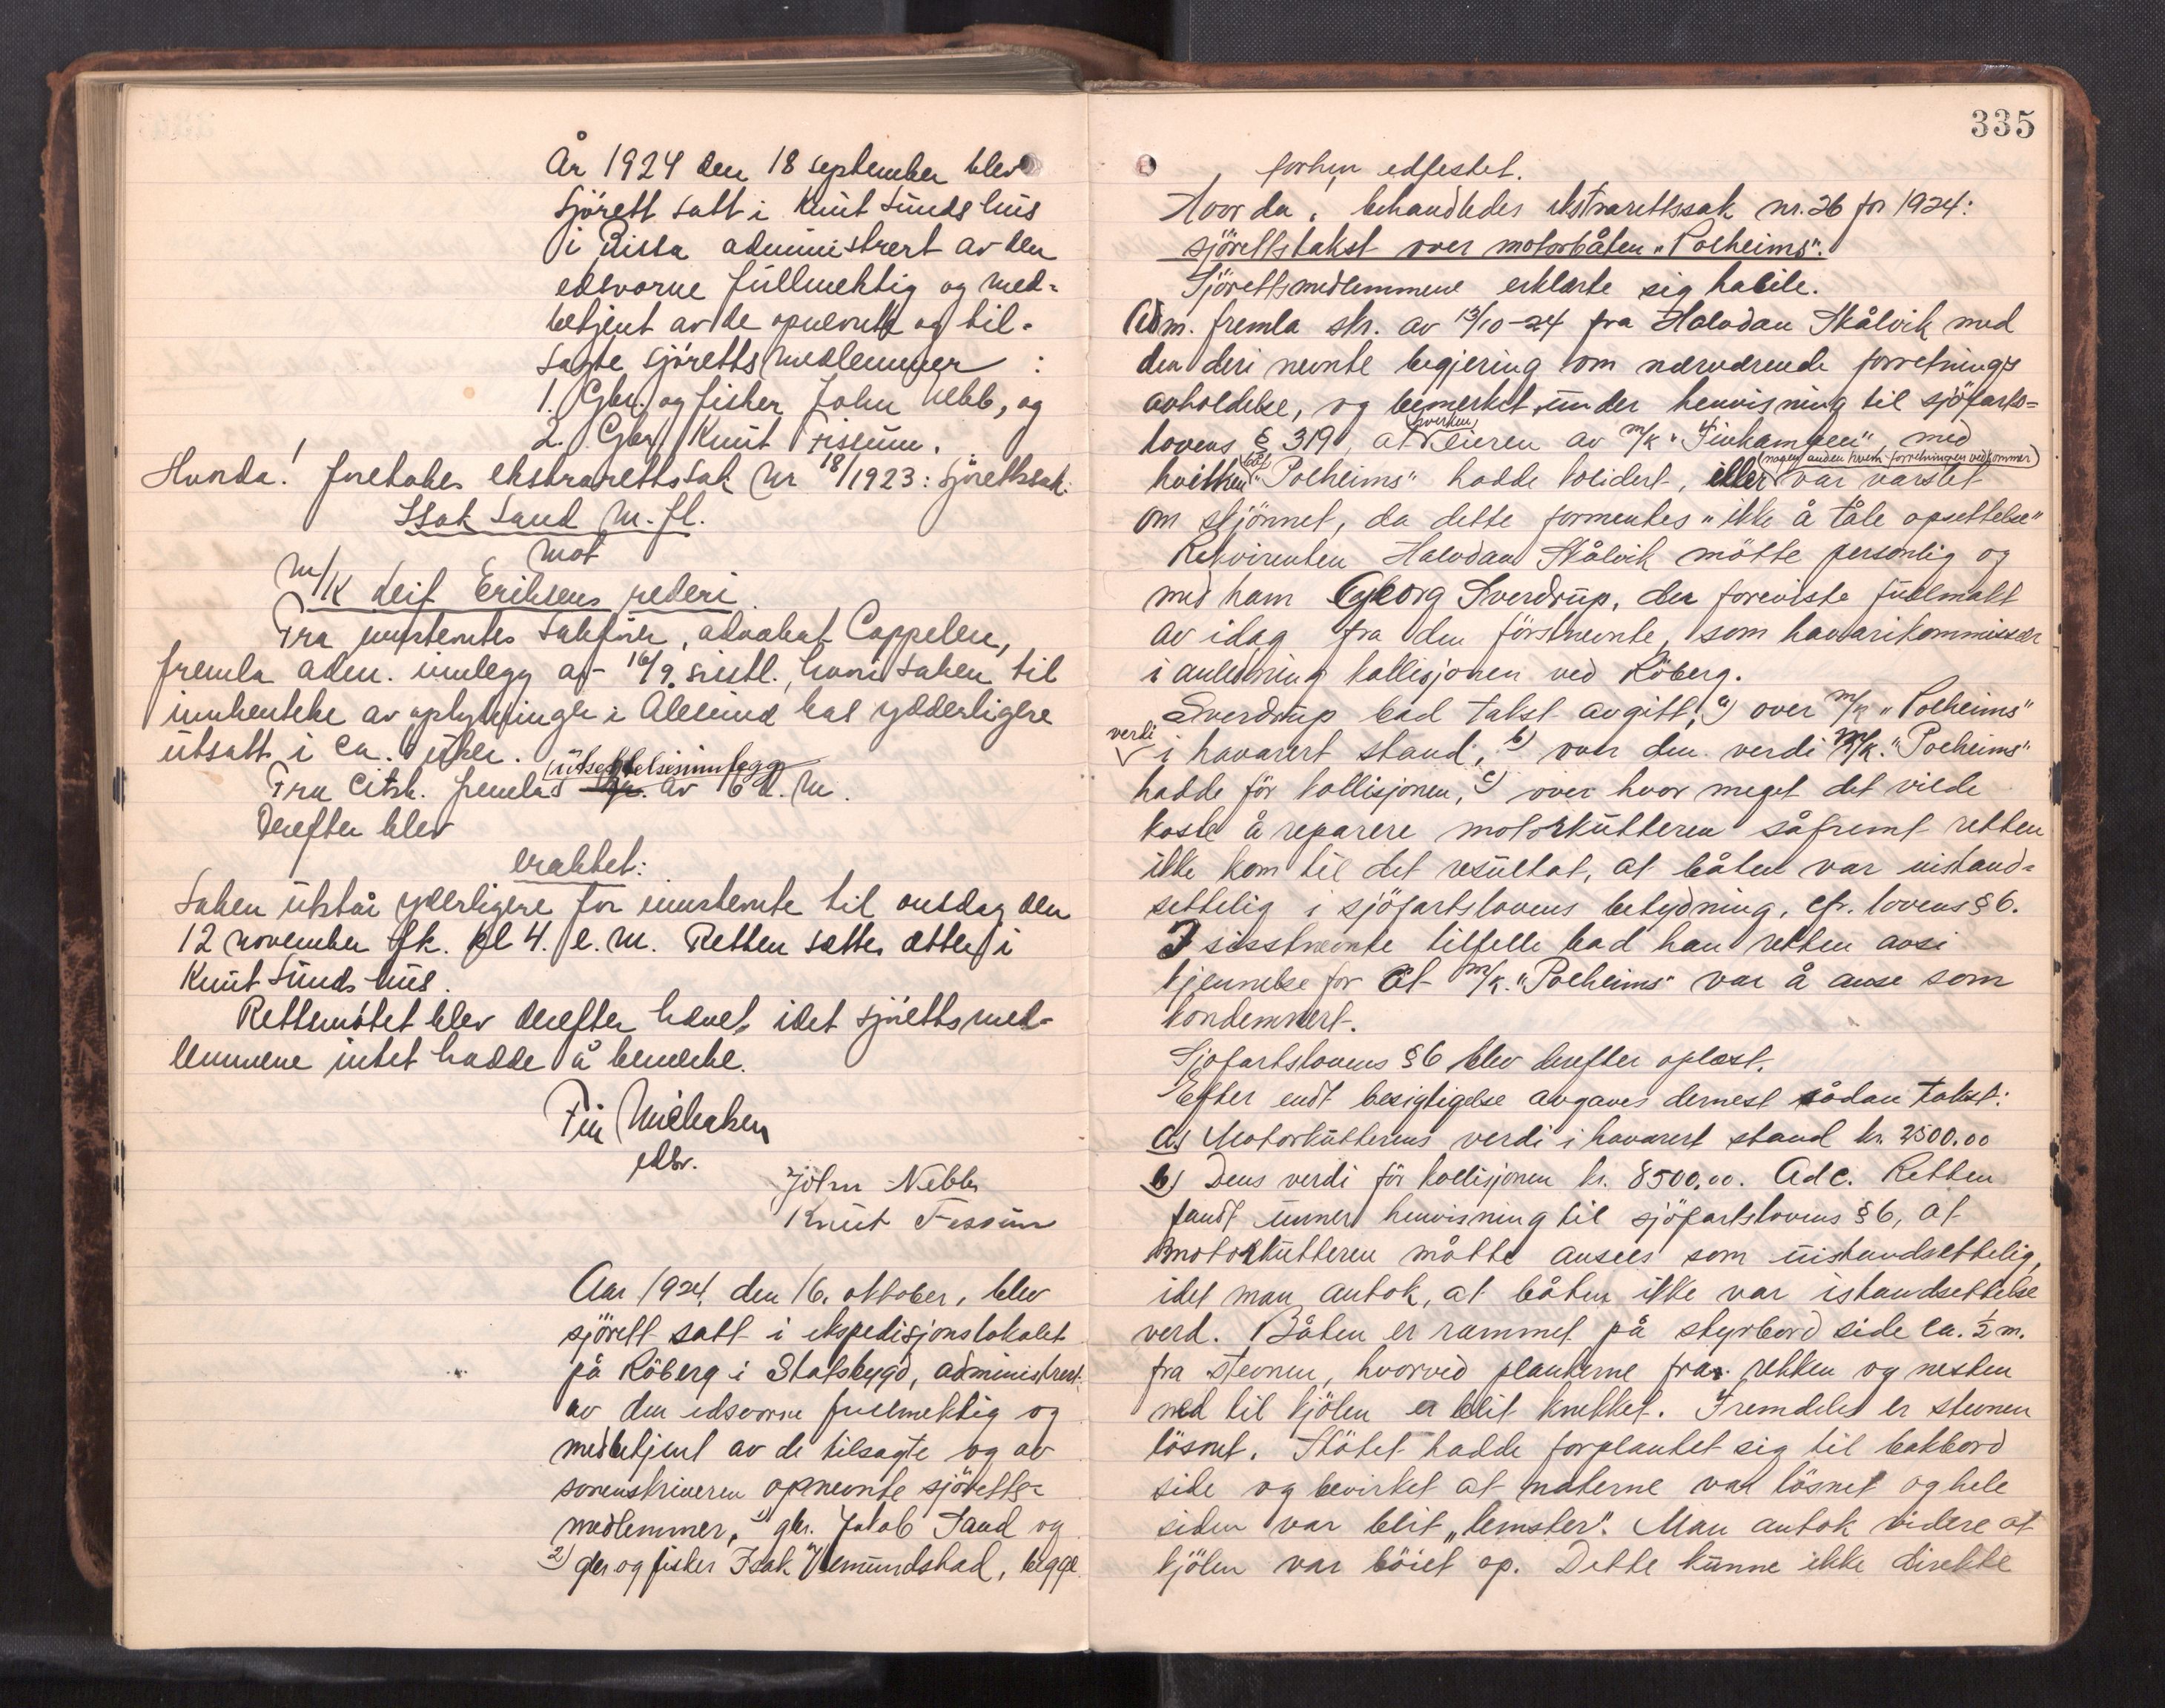 År 1924 den 18 september blev
Sjörett satt i Knut Sunds hus
i Rissa administrert av den
edsvorne fullmektig og med-
betjent av de opnevnte og til-
sagte sjörettsmedlemmer :
1. Gbr. og fisker John Nebb, og
2. Gbr. Knut Fissum.
Hvorda! foretokes ekstrarettssak nr 18/1923: Sjörettssak:
Isak Sand m. fl.
mot
M/K Leif Eriksens rederi.
Fra innstevntes sakförer, advokat Cappelen,
fremla adm. innlegg av 16/9 sistl., hvori saken til
innhentelse av oplysninger i Ålesund bes yderligere
utsatt i ca. 6 uker.
Fra Citsk. fremlas utsettelsesinnlegg av 6 d. m.
Derefter blev
eraktet:
Saken utstår yderligere for innstevnte til onsdag den
12 november fk. kl 4. e. m. Retten settes atter i
Knut Sunds hus.
Rettsmötet blev derefter hevet, idet sjörettsmed-
lemmene intet hadde å bemerke.
Fin Michelsen
edsv.
John Nebb
Knut Fissum
Aar 1924, den 16. oktober, blev
sjörett satt i ekspedisjonslokalet
på Röberg i Stadsbygd, administrert
av den edsvorne fullmektig og
medbetjent av de tilsagte og av
sorenskriveren opnevnte sjöretts-
medlemmer, 1) gbr. Jakob Sand og
2) gbr og fisker Isak Vemundstad, begge
335
forhen edfestet.
Hvor da, behandledes ekstrarettssak nr. 26 for 1924:
sjörettstakst over motorbåten "Solheims".
Sjörettsmedlemmene erklærte sig habile.
Adm. fremla skr. av 13/10-24 fra Halvdan Skålvik med
den deri nevnte begjering om nærværende forretnings
avholdelse, og bemerket under henvisning til sjöfarts-
lovens § 319, at hverken eieren av m/k "Finkampen", med
hvilken båt "Solheims" hadde kolidert, eller nogen anden hvem forretningen vedkommer var varslet
om skjönnet, da dette formentes "ikke å tåle opsettelse"
Rekvirenten Halvdan Skålvik mötte personlig og
med ham Georg Sverdrup, der foreviste fullmakt
av idag fra den förstnevnte, som havarikommissær
i anledning kollisjonen ved Röberg.
Sverdrup bad takst avgitt; a) over m/k "Solheims"
verdi i havarert stand; b) over den verdi m/k. "Solheims"
hadde för kollisjonen, c) over hvor meget det vilde
koste å reparere motorkutteren såfremt retten
ikke kom til det resultat, at båten var uistand-
settelig i sjöfartslovens betydning, cfr. lovens § 6.
I sisstnevnte tilfelle bad han retten avsi
kjennelse for at m/k. "Solheims" var å anse som
kondemnert.
Sjöfartslovens § 6 blev derefter oplæst.
Efter endt besigtigelse avgaves dernest sådan takst:
a) Motorkutterens verdi i havarert stand kr. 2500.00
b) Dens verdi för kollisjonen kr. 8500.00. Ad c. Retten
fandt unner henvisning til sjöfartslovens § 6, at
motorkutteren måtte ansees som uistandsettelig,
idet man antok, at båten ikke var istandsettelse
verd. Båten er rammet på styrbord side ca. ½ m.
fra stevnen, hvorved plankerne fra rekken og nesten
ned til kjölen er blit knekket. Fremdeles er stevnen
lösnet. Stötet hadde forplantet sig til bakbord
side og bevirket at naterne var lösnet og hele
siden var blit "lemster". Man antok videre at
kjölen var böiet op. Dette kunne ikke direkte